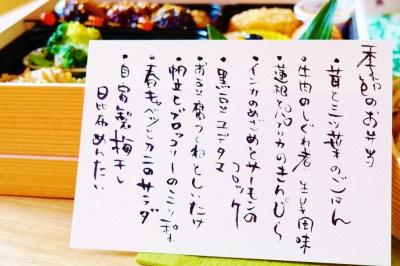 季節のお弁当
・茸と三ツ葉のごはん
・牛肉のしぐれ煮 生姜風味
・蓮根とパプリカのきんぴら
・インカのめざめとサーモンの
コロッケ
・黒豆ユデタマ
・お豆腐つくねとしいたけ
・帆立とブロッコリーのミソ和
・春キャベツとカニのサラダ
・自家製梅干し
昆布めんたい